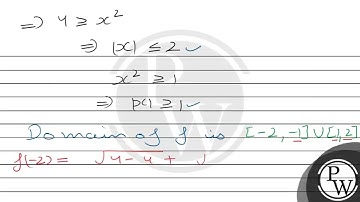 =) 4 ≥ x²
=) |x| ≤ 2 ✓
x² ≥ 1
=) |x| ≥ 1 ✓
Domain of f is [-2, -1] ∪ [1, 2]
f(-2) = √4-4 + √
PW